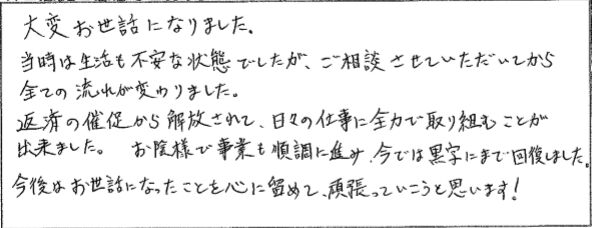 大変お世話になりました。
当時は生活も不安な状態でしたが、ご相談させていただいてから
全ての流れが変わりました。
返済の催促から解放されて、日々の仕事に全力で取り組むことが
出来ました。 お陰様で事業も順調に進み、今では黒字にまで回復しました。
今後はお世話になったことを心に留めて、頑張っていこうと思います!